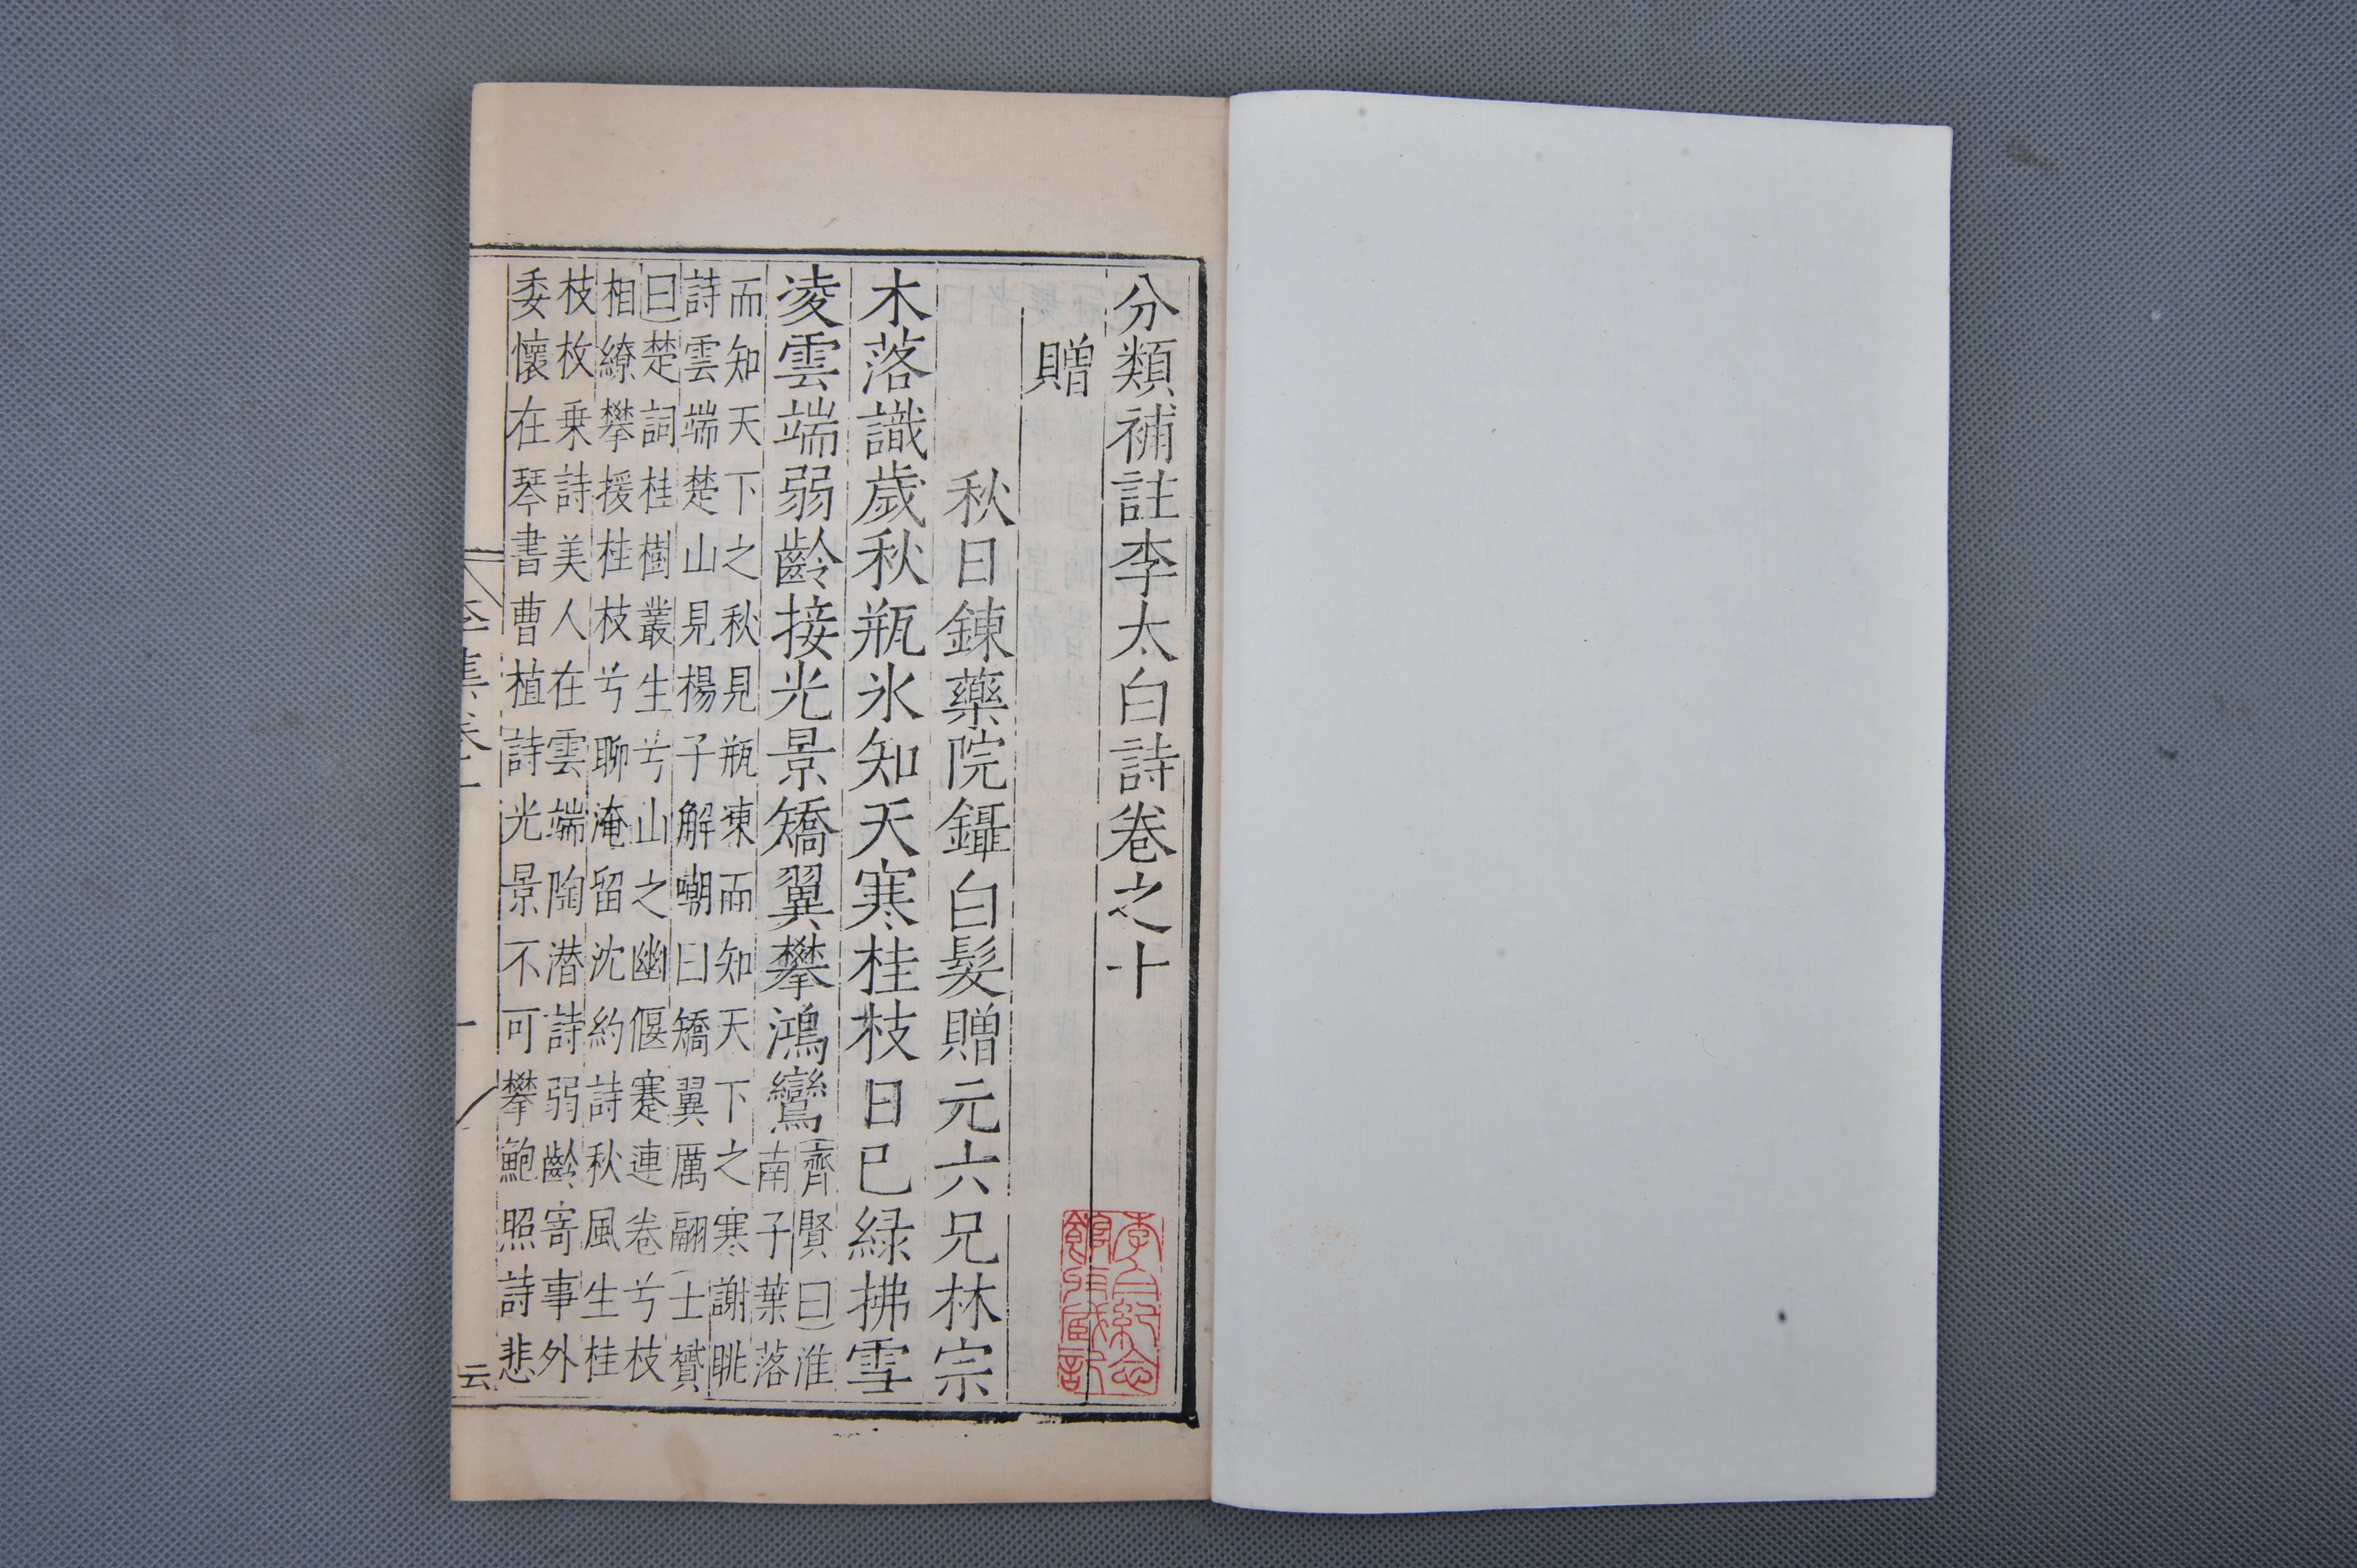 分類補註李太白詩卷之十
贈
秋日鍊藥院鑷白髮贈元六兄林宗
木落識歲秋瓶氷知天寒桂枝日已綠拂雪
凌雲端弱齡接光景矯翼攀鴻鸞
齊賢曰淮
南子葉落
而知天下之秋見瓶凍而知天下之寒謝眺
詩雲端楚山見楊子解嘲曰矯翼厲翮士贇
曰楚詞桂樹叢生兮山之幽偃蹇連卷兮枝
相繚攀援桂枝兮聊淹留沈約詩秋風生桂
枝枚乗詩美人在雲端陶潜詩弱齡寄事外
委懷在琴書曹植詩光景不可攀鮑照詩悲
李集卷十
一
云
李白紀念
館收藏記